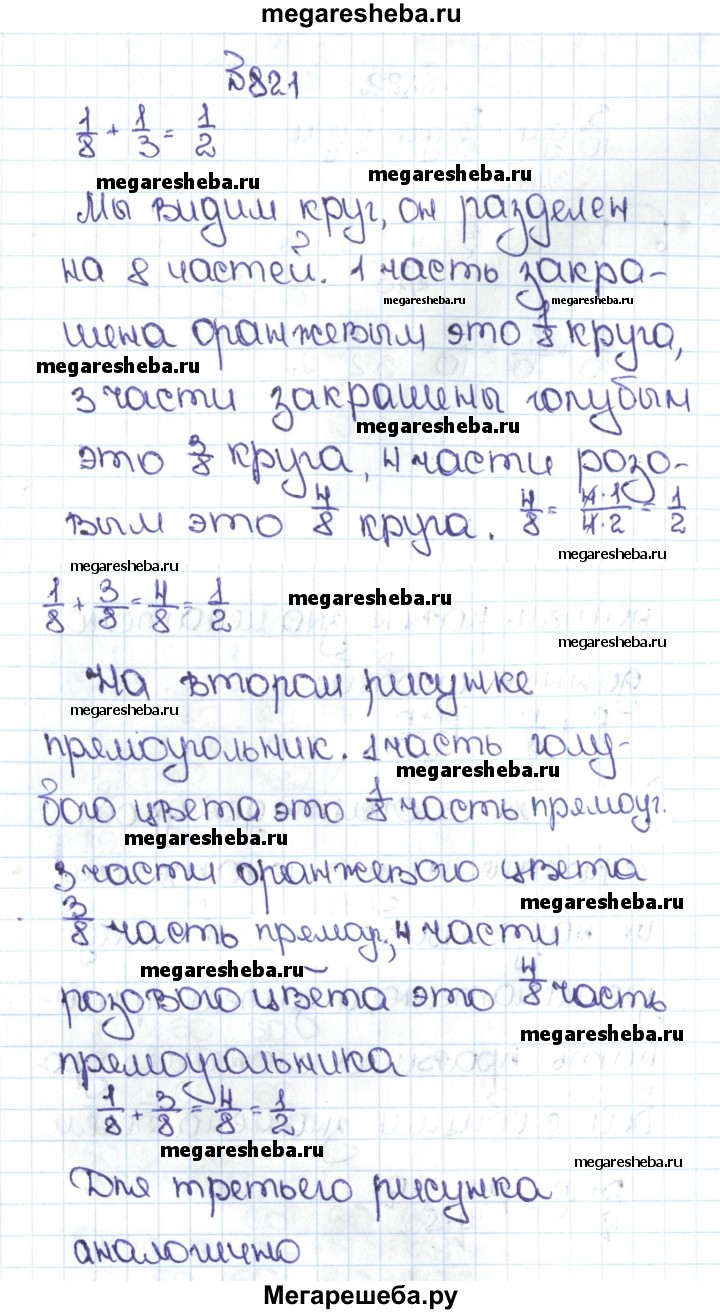 megaresheba.ru
№821
1/8 + 1/3 = 1/2
megaresheba.ru megaresheba.ru
Мы видим круг, он разделен
на 8 частей. 1 часть закра-
megaresheba.ru megaresheba.ru
шена оранжевым это 1/8 круга,
megaresheba.ru
3 части закрашены голубым
megaresheba.ru
это 3/8 круга, 4 части розо-
вым это 4/8 круга. 4/8 = 4·1/4·2 = 1/2
megaresheba.ru
megaresheba.ru
1/8 + 3/8 = 4/8 = 1/2
megaresheba.ru
megaresheba.ru
На втором рисунке
megaresheba.ru
прямоугольник. 1 часть голу-
megaresheba.ru
бого цвета это 1/8 часть прямоуг.
megaresheba.ru
3 части оранжевого цвета
megaresheba.ru
3/8 часть прямоуг, 4 части
megaresheba.ru
розового цвета это 4/8 часть
megaresheba.ru
прямоугольника
1/8 + 3/8 = 4/8 = 1/2
megaresheba.ru
megaresheba.ru
Для третьего рисунка
аналогично
Мегарешеба.ру